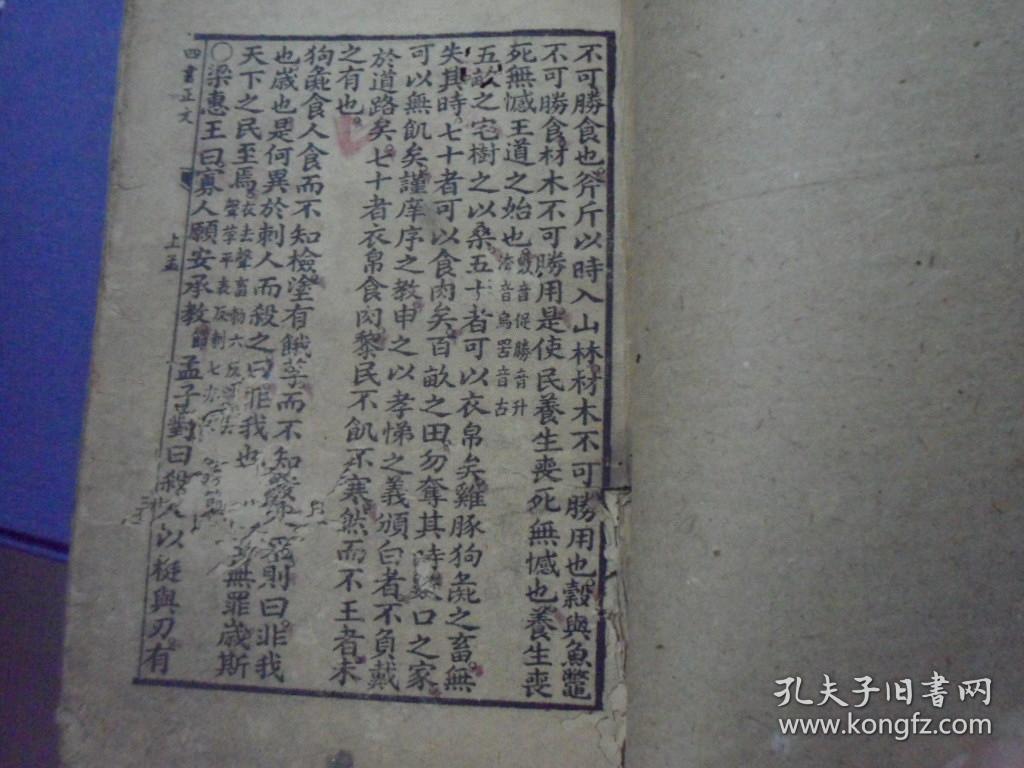 不可勝食也斧斤以時入山林材木不可勝用也穀與魚鼈
不可勝食材木不可勝用是使民養生喪死無憾也養生喪
死無憾王道之始也數音促勝音升洿音烏罟音古
五畝之宅樹之以桑五十者可以衣帛矣雞豚狗彘之畜無
失其時七十者可以食肉矣百畝之田勿奪其時數口之家
可以無飢矣謹庠序之教申之以孝悌之義頒白者不負戴
於道路矣七十者衣帛食肉黎民不飢不寒然而不王者未
之有也
狗彘食人食而不知檢塗有餓莩而不知發則曰非我
也歲也是何異於刺人而殺之曰非我也無罪歲斯
天下之民至焉衣去聲畜勑六反聲莩平表反刺七
〇梁惠王曰寡人願安承教孟子對曰殺人以梃與刃有
四書正文
上孟
孔夫子旧书网
www.kongfz.com